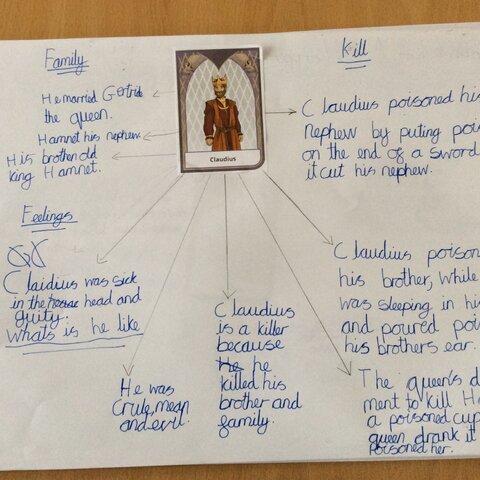 Family
He married Gertride
the queen.
Hamnet his nephew
His brother old
king Hamnet.
Claudius
Kill
Claudius poisoned his
nephew by puting poi
on the end of a sword
it cut his nephew.
Feelings
Claidius was sick
in the head and
guity.
whats is he like
He was
Crule, mean
and evil.
Claudius
is a killer
because
He he
killed his
brother and
family.
Claudius poison
his brother, while
was sleeping in his
and poured poi
his brothers ear.
The queen's d
ment to kill H
a poisoned cup
queen drank it
Poisoned her.